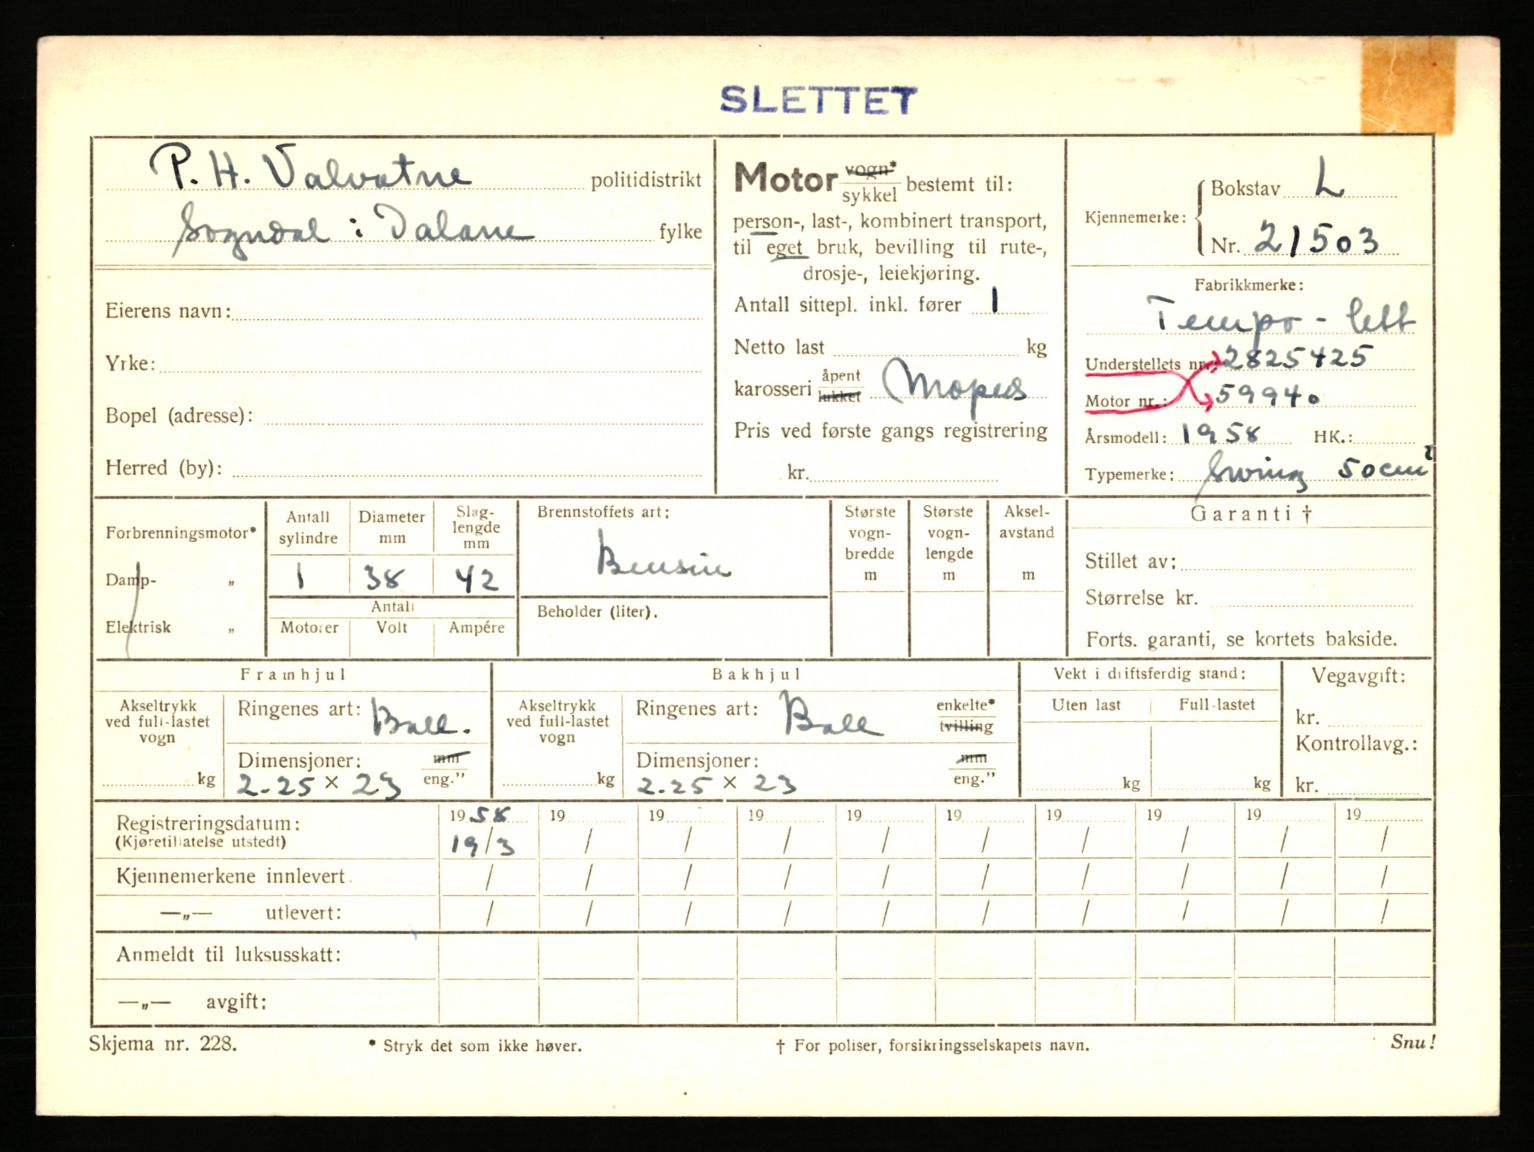 SLETTET
P. H. Valvatne politidistrikt
Sogndal i Dalane fylke
Eierens navn:
Yrke:
Bopel (adresse):
Herred (by):
Motor vogn* sykkel bestemt til:
person-, last-, kombinert transport,
til eget bruk, bevilling til rute-,
drosje-, leiekjøring.
Antall sittepl. inkl. fører 1
Netto last kg
karosseri åpent lukket Moped
Pris ved første gangs registrering
kr.
Kjennemerke: Bokstav L
Nr. 21503
Fabrikkmerke:
Tempo - lett
Understellets nr.: 2825425
Motor nr.: 59940
Årsmodell: 1958 HK.:
Typemerke: Swing 50cm²
Forbrenningsmotor*
Damp- „
Elektrisk „
Antall sylindre Diameter mm Slaglengde mm
1 38 42
Antall
Motorer Volt Ampére
Brennstoffets art:
Bensin
Beholder (liter).
Største vognbredde m
Største vognlengde m
Akselavstand m
Garanti †
Stillet av:
Størrelse kr.
Forts. garanti, se kortets bakside.
Framhjul
Akseltrykk ved full-lastet vogn
kg
Ringenes art: Ball.
Dimensjoner: mm
2.25 × 23 eng."
Bakhjul
Akseltrykk ved full-lastet vogn
kg
Ringenes art: Ball enkelte* tvilling
Dimensjoner: mm
2.25 × 23 eng."
Vekt i driftsferdig stand:
Uten last Full-lastet
kg kg
Vegavgift:
kr.
Kontrollavg.:
kr.
Registreringsdatum: 1958 19 19 19 19 19 19 19 19 19
(Kjøretillatelse utstedt) 19/3 / / / / / / / / /
Kjennemerkene innlevert / / / / / / / / / /
—„— utlevert: / / / / / / / / / /
Anmeldt til luksusskatt:
—„— avgift:
Skjema nr. 228. * Stryk det som ikke høver. † For poliser, forsikringsselskapets navn. Snu!